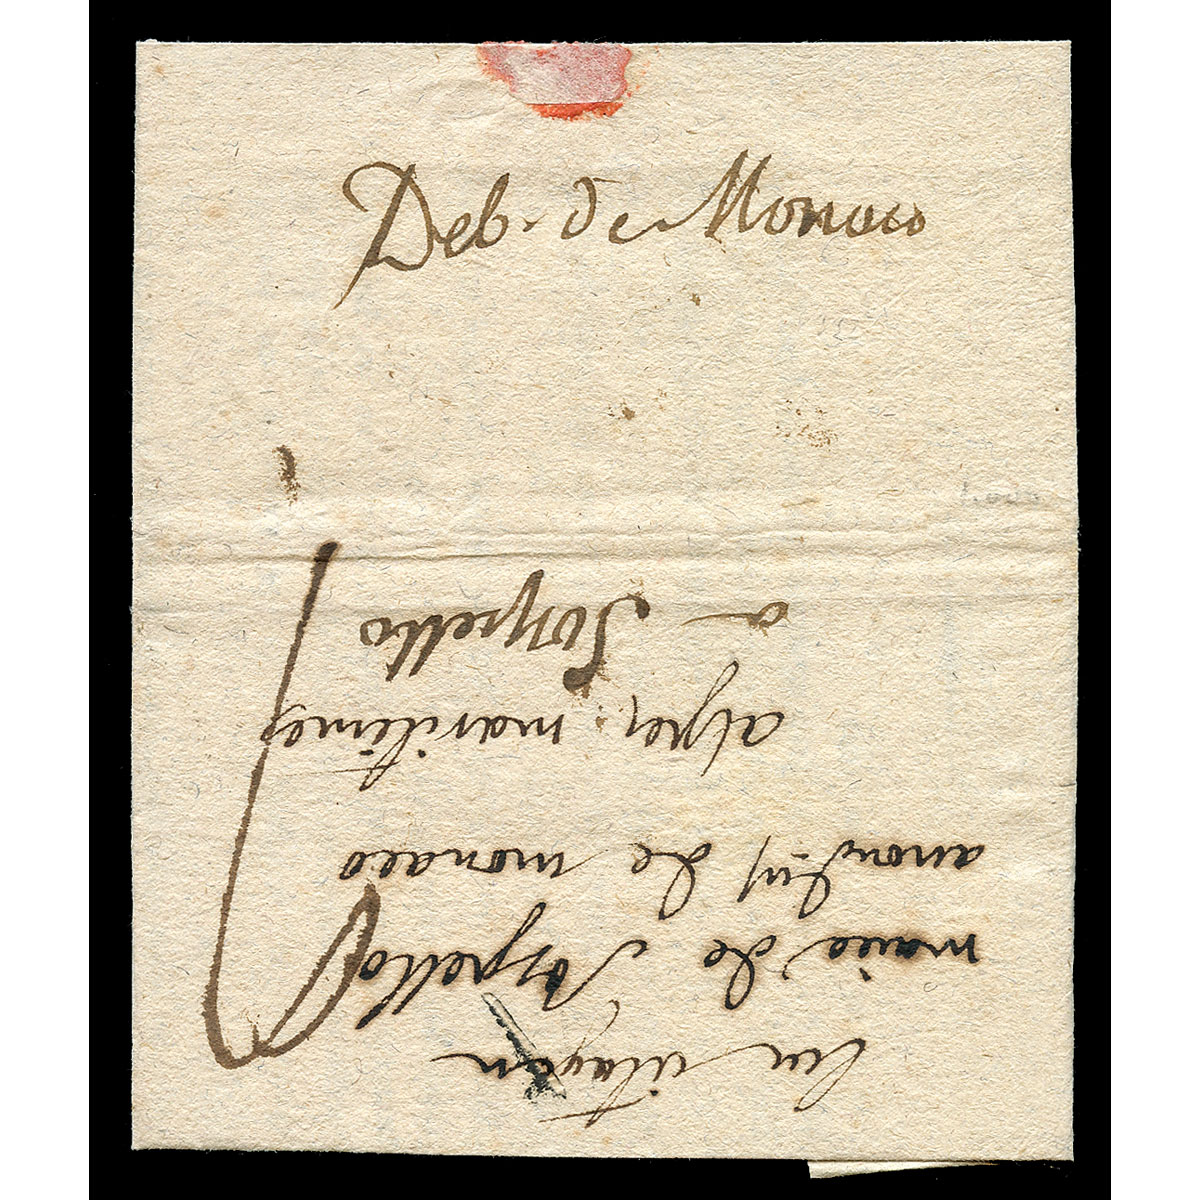 Deb. de Monaco
au citoyen
maire de Sospello
arrond.t de monaco
alpes maritimes
a Sospello